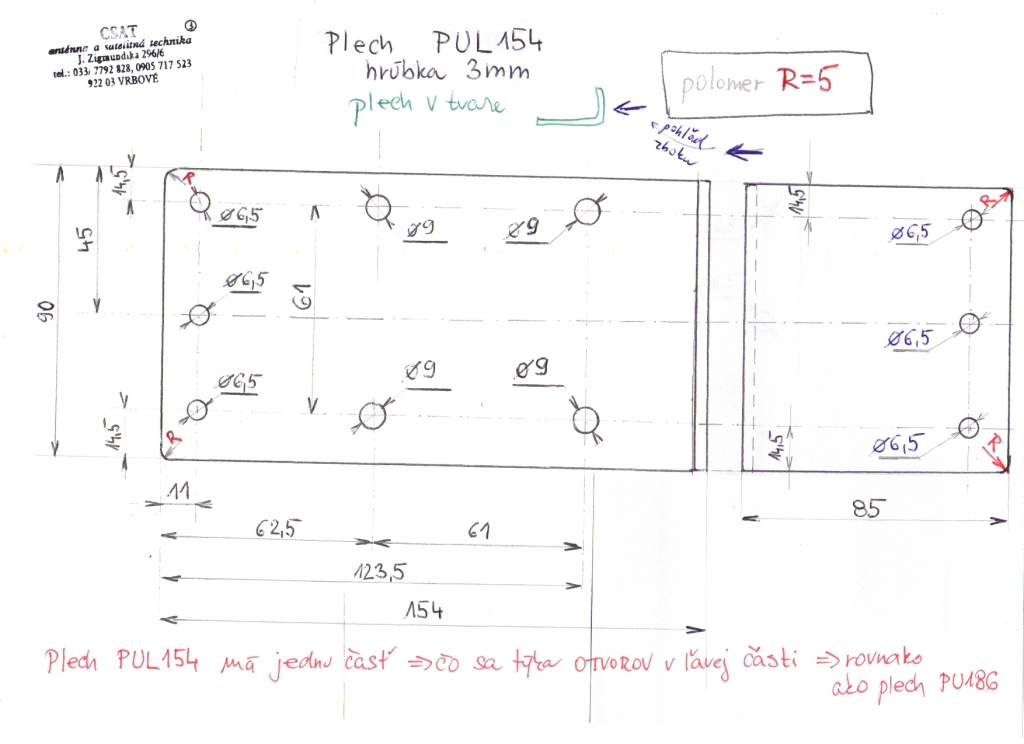 CSAT
3
anténna a satelitná technika
J. Zigmundíka 296/6
tel.: 033/ 7792 828, 0905 717 523
922 03 VRBOVÉ
Plech PUL154
hrúbka 3mm
plech v tvare
polomer R=5
pohľad
zboku
14,5
R
Ø6,5
Ø9
Ø9
14,5
R
Ø6,5
45
Ø6,5
61
90
Ø6,5
Ø6,5
Ø9
Ø9
14,5
R
14,5
Ø6,5
R
11
62,5
61
85
123,5
154
Plech PUL154 má jednu časť => čo sa týka OTVOROV v ľavej časti => rovnako
ako plech PU186